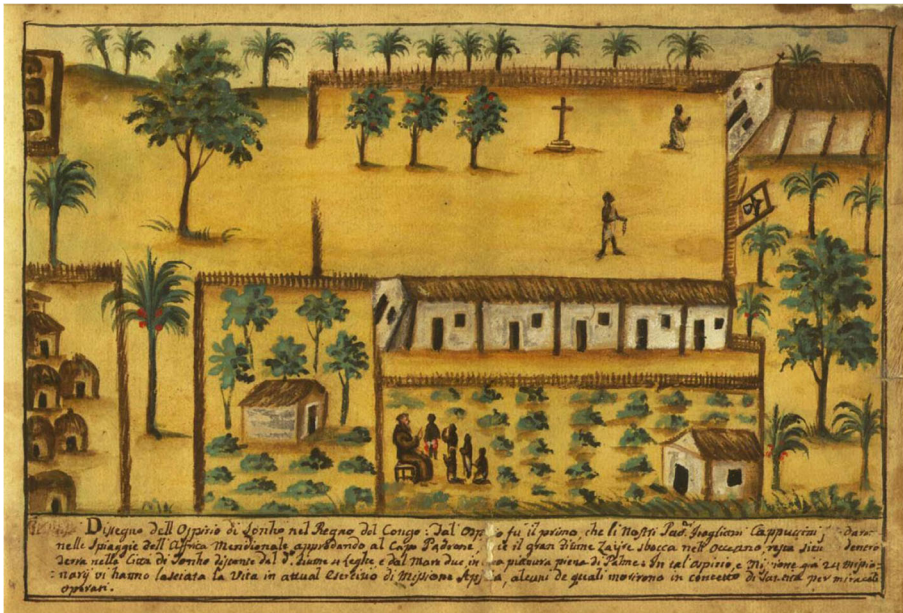 Dissegno dell Ospitio di Sonho nel Regno del Congo: Tal Osp o fu il primo, che li Nostri Pad. Cappucini
nelle Spiaggie dell Affrica Meridionale approdando al Capo Padrone, e il gran fiume Zaire sbocca nell Oceano, resta dentro
Terra nella Città di Sonho distante dal d. fiume Leghe e dal Mare due, in a pianura piena di Palme: In tal Ospitio, e Mi ione già 24 Missio:
narij vi hanno lasciata la Vita in attual Esercitio di Missione App a, alcuni de quali morirono in concetto di Santità per miracoli
operati.